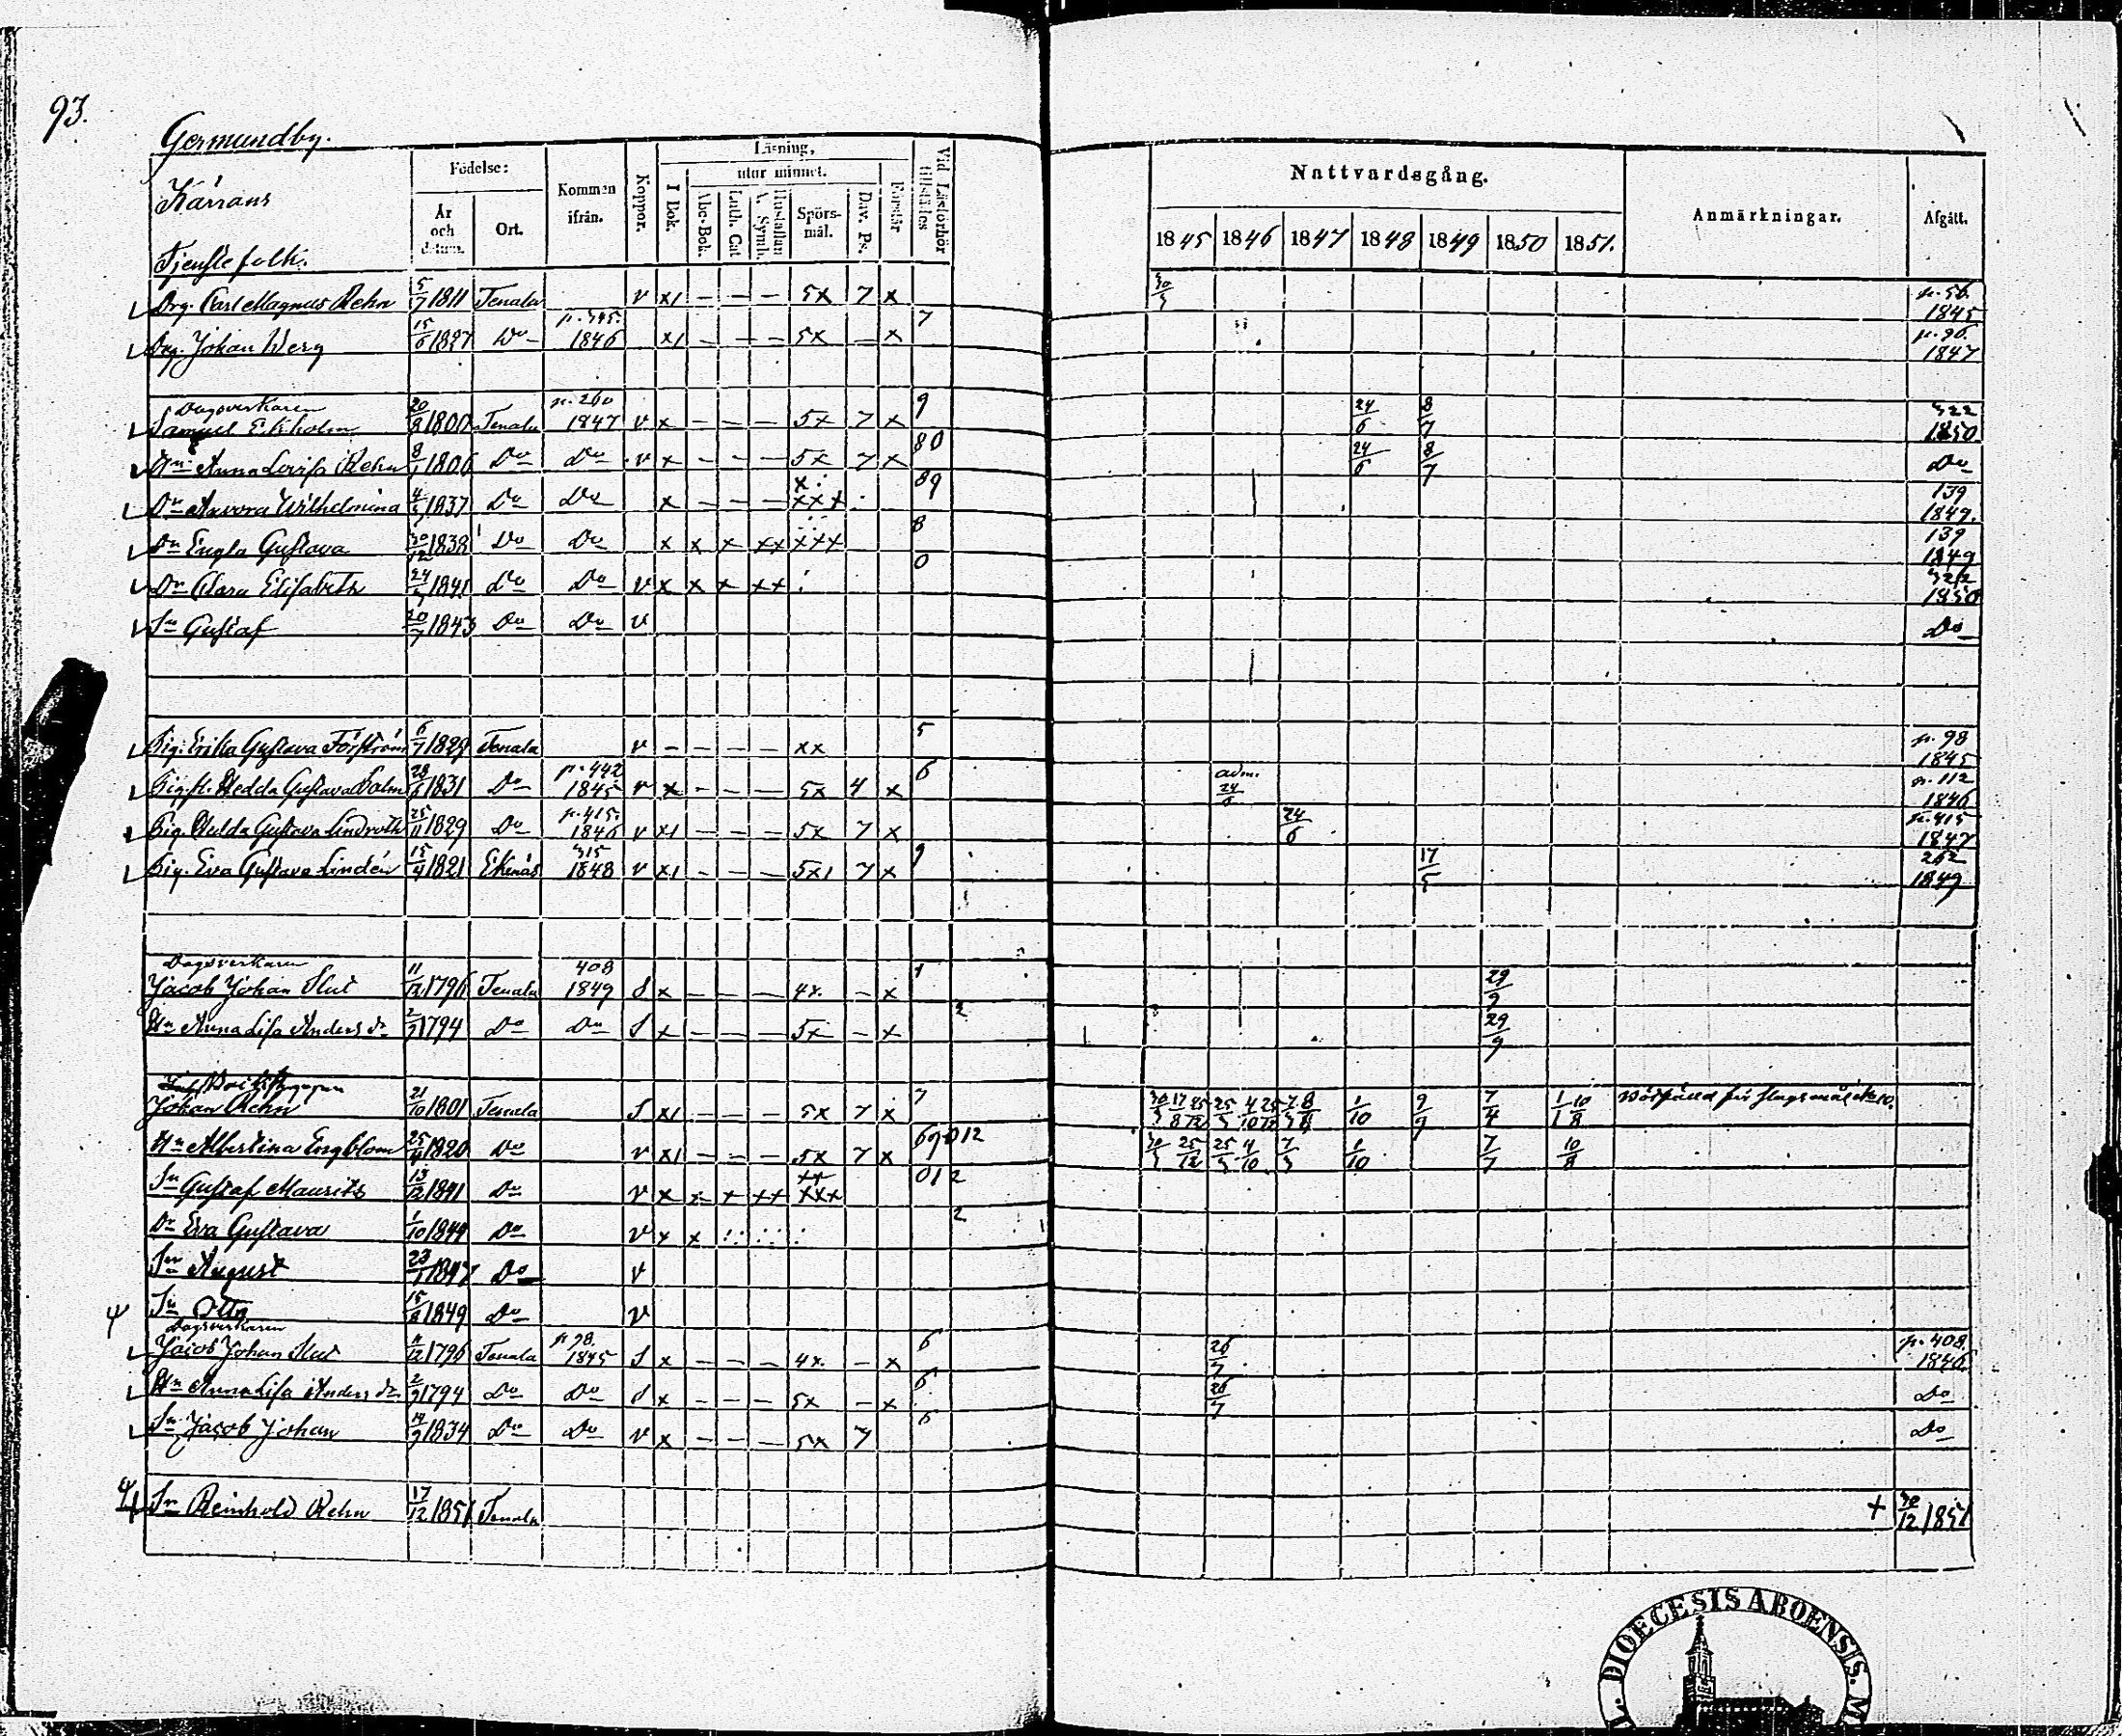 93.
Germundby.
Kärrans
Tjenstefolk.
Födelse:
År och datum.
Ort.
Kommen ifrån.
Koppor.
Läsning,
I Bok.
utur minnet.
Abc-Bok.
Luth. Cat
Hustaflan A. Symb.
Spörs-mål.
Dav. Ps.
Förstår
Vid Läsförhör tillstädes
Nattvardsgång.
1845 1846 1847 1848 1849 1850 1851.
Anmärkningar.
Afgått.
Drg. Carl Magnus Rehn 5/7 1811 Tenala v x1 – – – 5x 7 x 30/3 p. 56. 1845
Drg. Johan Werg 15/6 1827 Do p. 395. 1846 x1 – – – 5x – x 7 p. 96. 1847
Dagsverkaren
Samuel Ekholm 20/8 1800 Tenala p. 260 1847 v x – – – 5x 7 x 9 24/6 8/7 322 1850
Hu Anna Lovisa Rehn 8/1 1806 Do Do v x – – – 5x 7 x 80 24/6 8/7 Do
Dr Aurora Wilhelmina 1837 Do Do x – – – xxx 89 139 1849.
Dr Engla Gustava 30/12 1838 Do Do x x x xx xxx 8 139 1849
Dr Clara Elisabeth 1841 Do Do v x x x xx 0 322 1850
Sn Gustaf 20/7 1843 Do Do v Do
Pig. Erika Gustava Förström 6/7 1829 Tenala v – – – – xx 5 p. 98 1845
Pig. fl. Hedda Gustava Salm 28/6 1831 Do p. 442 1845 v x – – – 5x 4 x 6 adm. 24/6 p. 112 1846
Pig. Hedda Gustava Lindroth 25/11 1829 Do p. 415. 1846 v x1 – – – 5x 7 x 24/6 p. 415 1847
Pig. Eva Gustava Lindén 15/4 1821 Ekenäs 315 1848 v x1 – – – 5x1 7 x 9 17/5 262 1849
Dagsverkaren
Jacob Johan Slut 11/12 1796 Tenala 408 1849 S x – – – 4x. – x 1 29/9
Hu Anna Lisa Anders dr 2/9 1794 Do Do S x – – – 5x – x 2 29/9
Johan Rehn 21/10 1801 Tenala S x1 – – – 5x 7 x 7 1/10 9/9 7/4 1/1 10/8
Hu Albertina Engblom 25/4 1820 Do v x1 – – – 5x 7 x 69012 30/3 25/12 25/3 4/10 7/3 1/10 7/7 10/8
Sn Gustaf Maurits 13/12 1841 Do v x x x xx xxx 012
Dr Eva Gustava 1/10 1844 Do v x x 2
Sn August 23/1 1847 Do v
Sn Otto 15/8 1849 Do v
Dagsverkaren
Jacob Johan Slut 11/12 1796 Tenala p 98. 1845 S x – – – 4x. – x 6 26/7 p. 408. 1846
Hu Anna Lisa Anders dr 2/9 1794 Do Do S x – – – 5x – x 6 26/7 Do
Sn Jacob Johan 1834 Do Do v x – – – 5x 7 6 Do
Sn Reinhold Rehn 17/12 1851 Tenala + 30/12 1851
DIOECESIS ABOENSIS. M